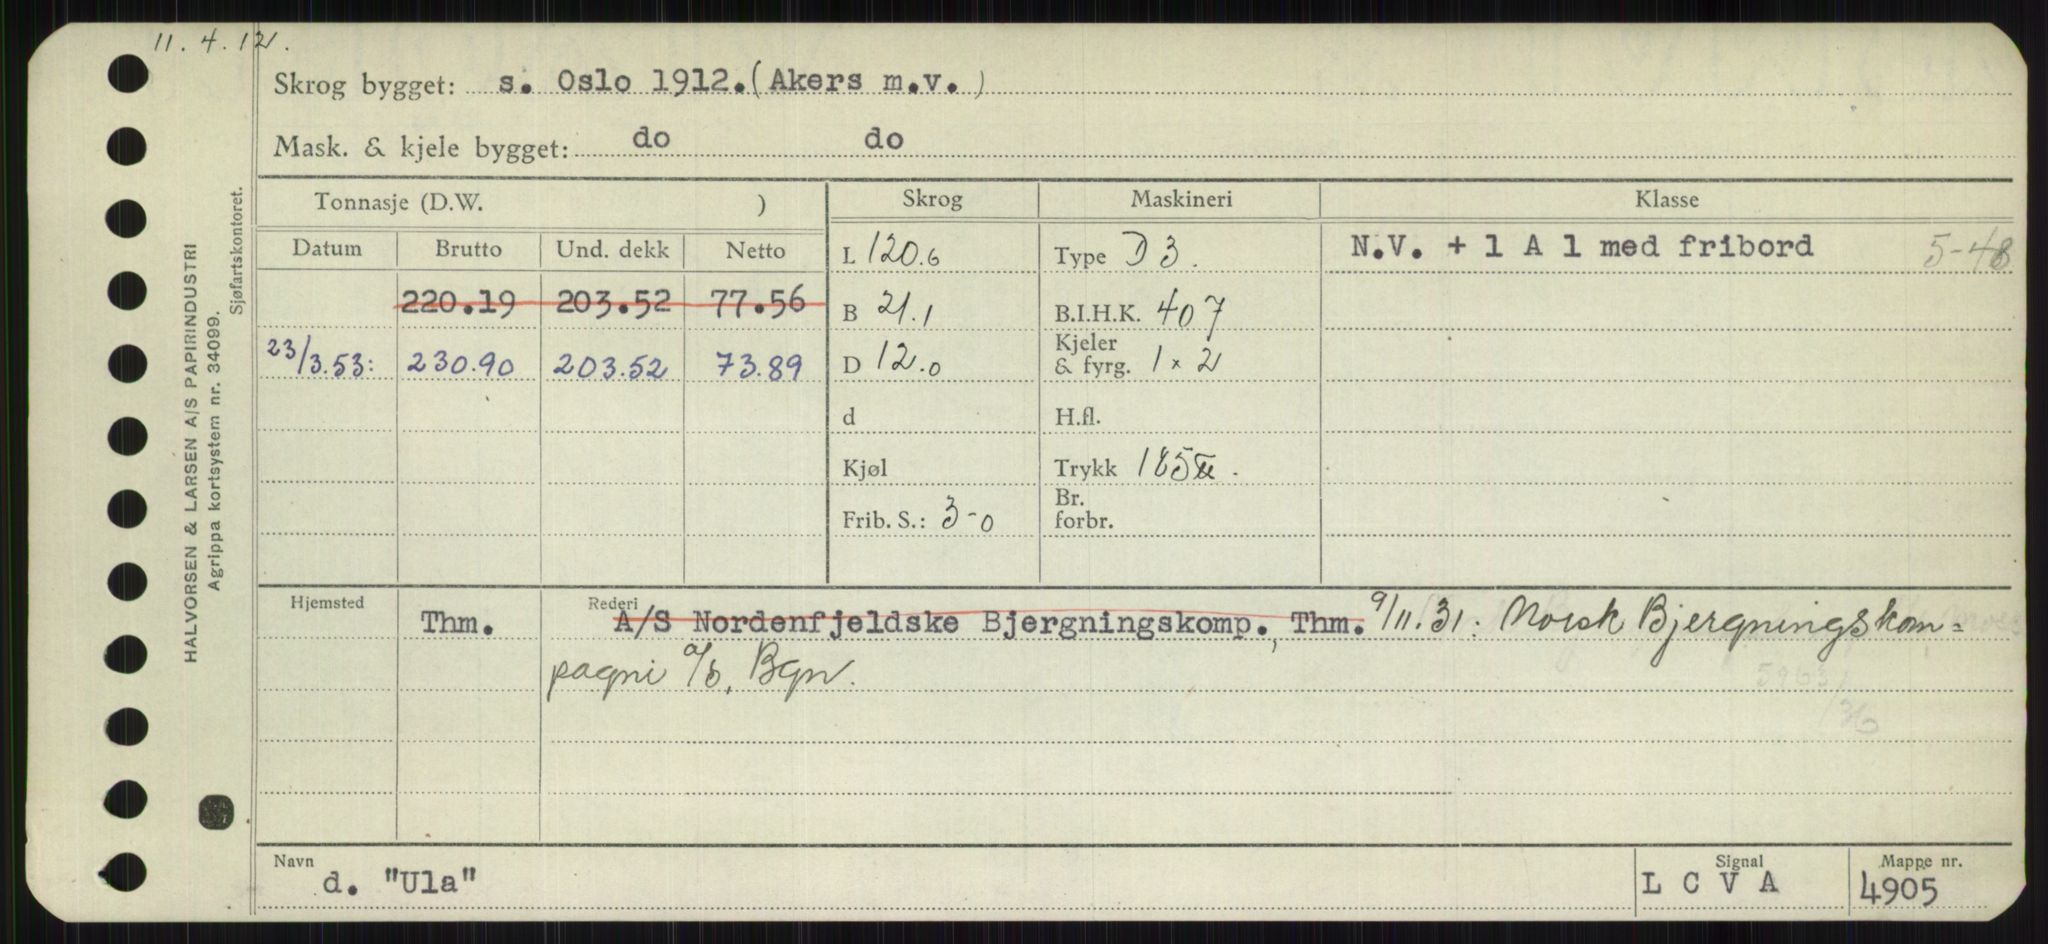 11.4.12.
Skrog bygget: s. Oslo 1912. (Akers m.v. )
Mask. & kjele bygget: do do
Tonnasje (D.W. ) Skrog Maskineri Klasse
Datum Brutto Und. dekk Netto L 120.6 Type D 3. N.V. + 1 A 1 med fribord 5-48
220.19 203.52 77.56 B 21.1 B.I.H.K. 407
23/3.53: 230.90 203.52 73.89 D 12.0 Kjeler & fyrg. 1 × 2
d H.fl.
Kjøl Trykk 185
Frib. S.: 3-0 Br. forbr.
Hjemsted Rederi
Thm. A/S Nordenfjeldske Bjergningskomp., Thm. 9/11.31: Norsk Bjergningskom=
pagni a/s, Bgn.
Navn Signal Mappe nr.
d. "Ula" L C V A 4905
HALVORSEN & LARSEN A/S PAPIRINDUSTRI
Agrippa kortsystem nr. 34099.
Sjøfartskontoret.